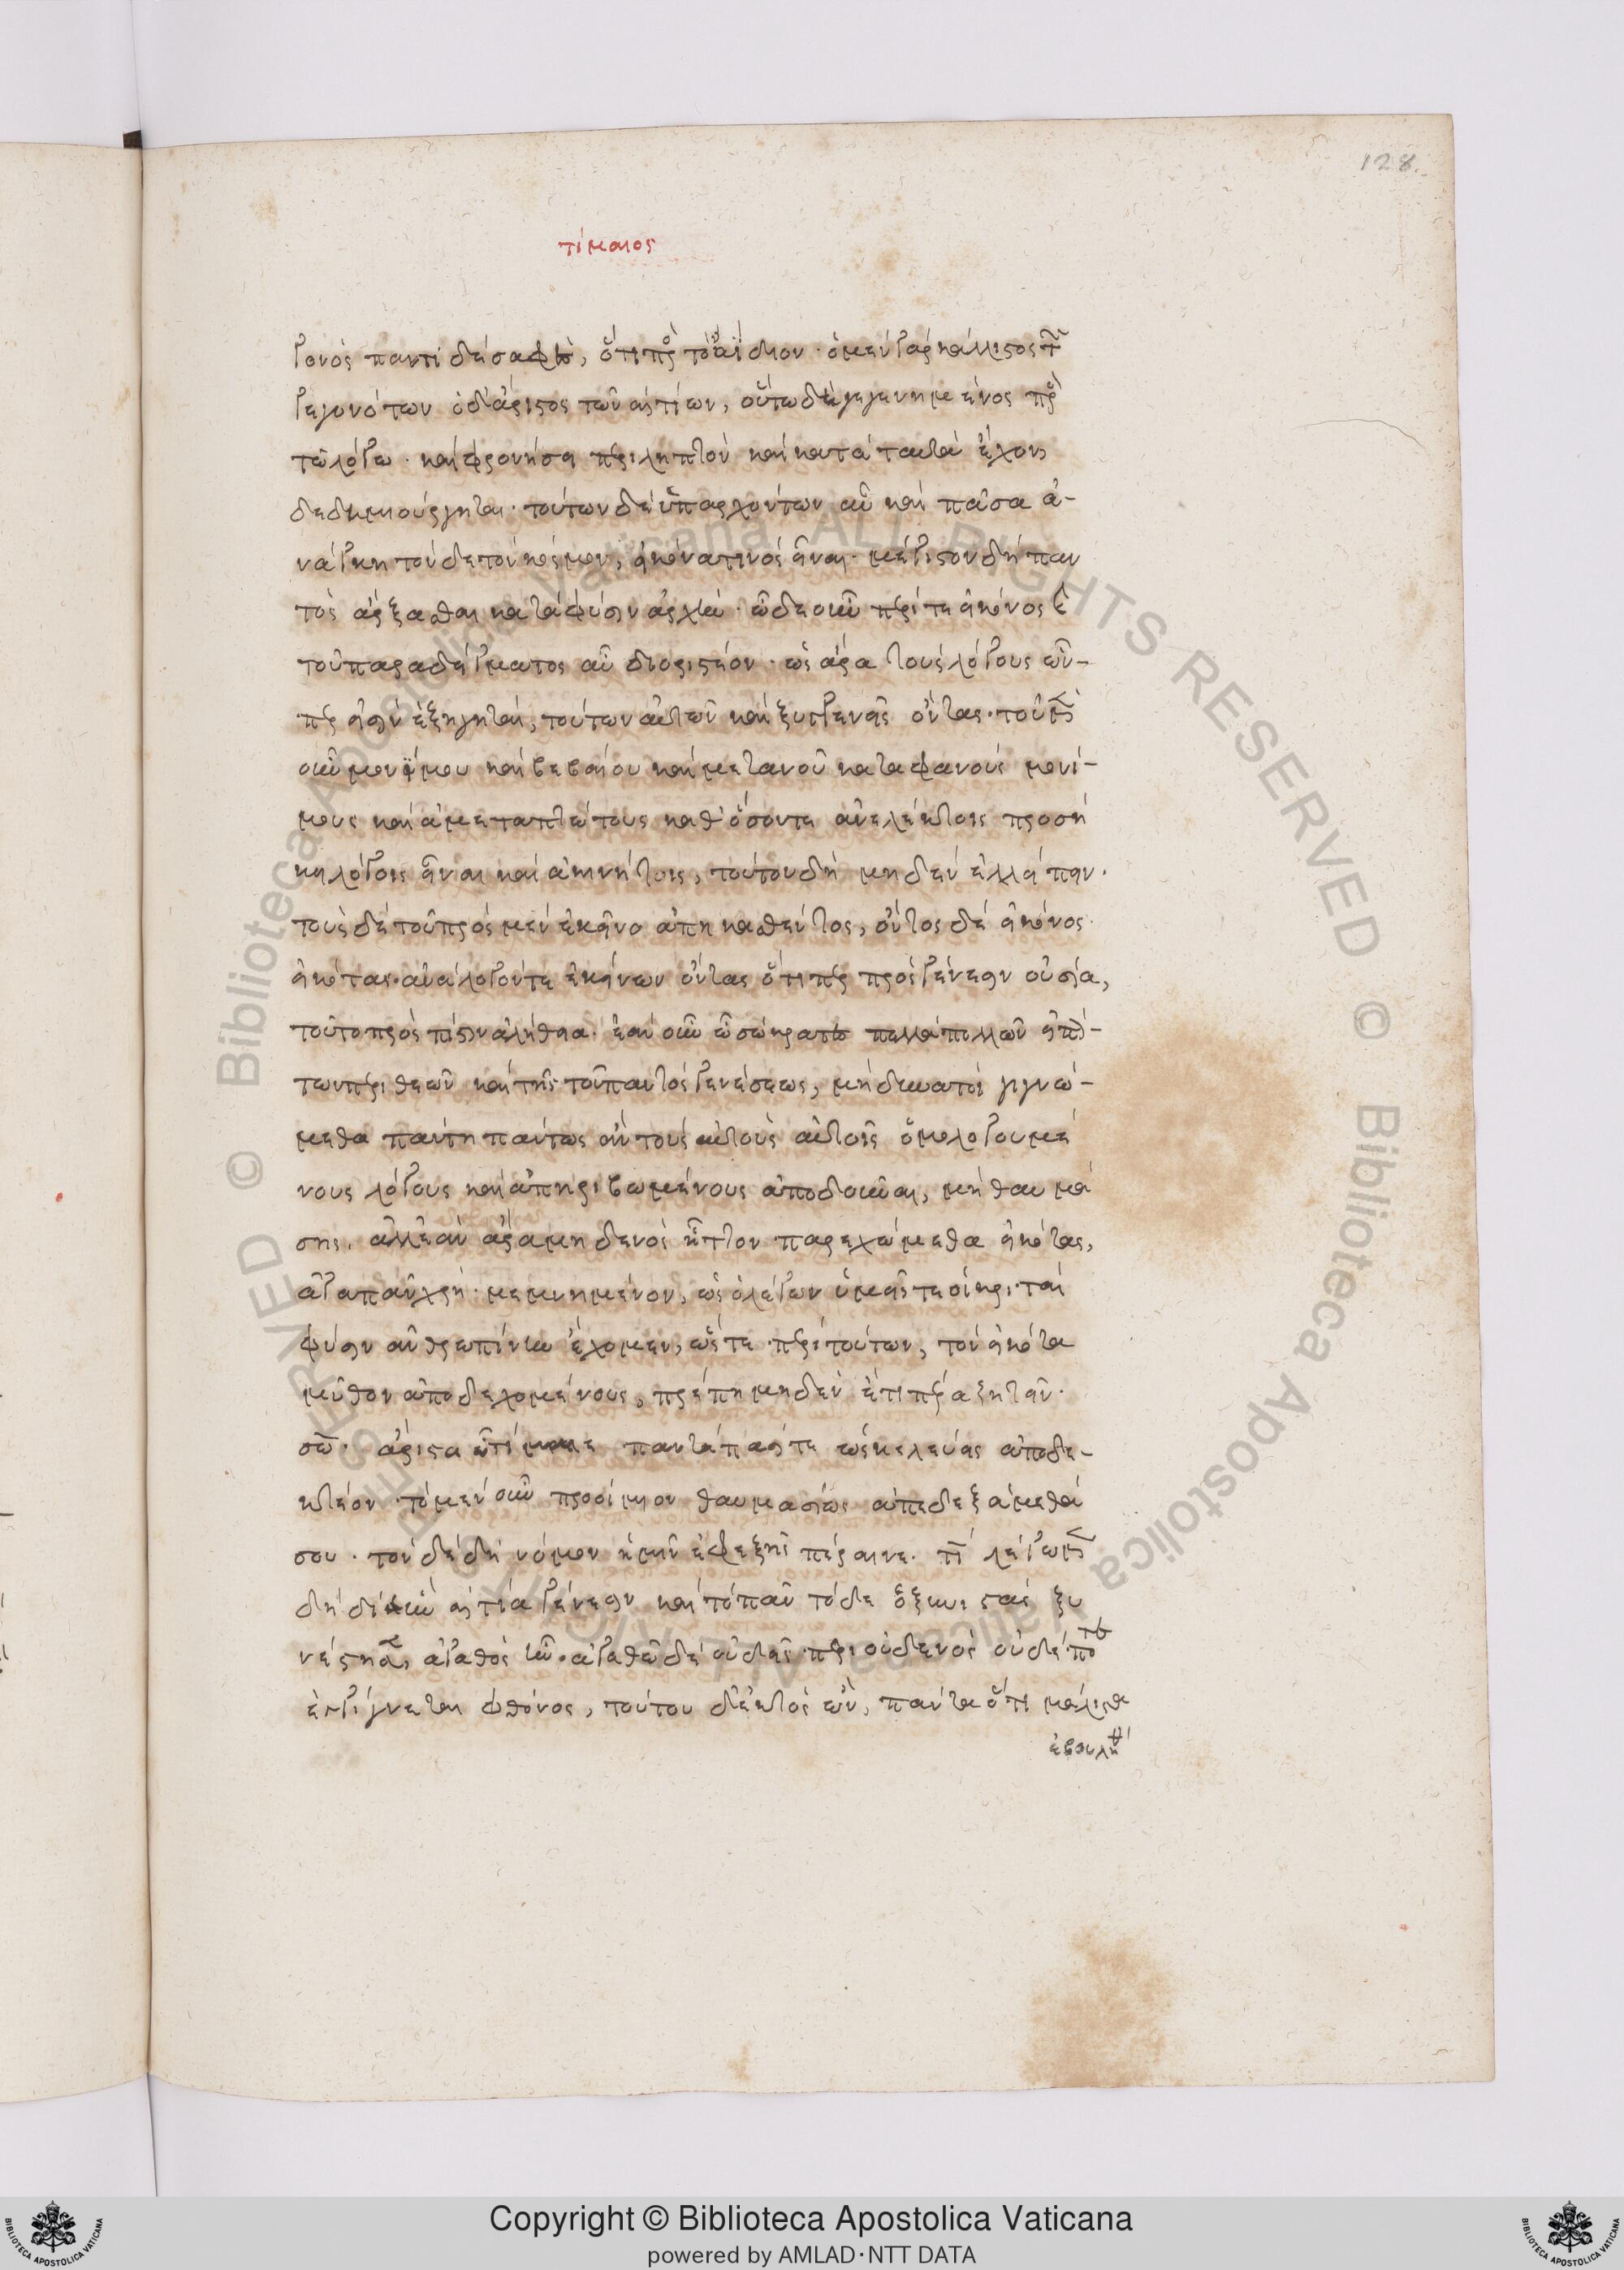 128.
τίμαιος
γονὸς παντὶ δὲ σαφὲς, ὅτι πρὸς τὸ ἀΐδιον· ὁ μὲν γὰρ κάλλιστος τῶν
γεγονότων ὁ δ' ἄριστος τῶν αἰτίων, οὕτω δὲ γεγενημένος πρὸς
τὸ λόγω· καὶ φρονήσει περιληπτὸν καὶ κατὰ ταυτὰ ἔχον,
δεδημιούργηται· τούτων δὲ ὑπαρχόντων αὖ καὶ πᾶσα ἀ-
νάγκη τόνδε τὸν κόσμον, εἰκόνα τινὸς εἶναι· μέγιστον δὴ παν
τὸς ἄρξασθαι κατὰ φύσιν ἀρχήν· ὧδε οὖν περί τε εἰκόνος καὶ
τοῦ παραδείγματος αὖ διοριστέον· ὡς ἄρα τοὺς λόγους ὧν-
περ εἰσὶν ἐξηγηταὶ, τούτων αὐτῶν καὶ ξυγγενεῖς ὄντας· τοῦ μὲν
οὖν μονίμου καὶ βεβαίου καὶ μετὰ νοῦ καταφανοῦς μονί-
μους καὶ ἀμεταπτώτους καθ' ὅσόν τε ἀνελέγκτοις προσή
κει λόγοις εἶναι καὶ ἀκινήτοις, τούτου δὴ μηδὲν ἐλλείπειν·
τοὺς δὲ τοῦ πρὸς μὲν ἐκεῖνο ἀπεικασθέντος, ὄντος δὲ εἰκόνος
εἰκότας· ἀνάλογόν τε ἐκείνων ὄντας ὅτι περ πρὸς γένεσιν οὐσία,
τοῦτο πρὸς πίστιν ἀλήθεια· ἐὰν οὖν ὦ σώκρατες πολλὰ πολλῶν εἰπόν-
των περὶ θεῶν καὶ τῆς τοῦ παντὸς γενέσεως, μὴ δυνατοὶ γιγνώ-
μεθα πάντη πάντως αὐτοὺς αὑτοῖς ὁμολογουμέ
νους λόγους καὶ ἀπηκριβωμένους ἀποδοῦναι, μὴ θαυμά
σης. ἀλλ' ἐὰν ἄρα μηδενὸς ἧττον παρεχώμεθα εἰκότας,
ἀγαπᾶν χρή· μεμνημένον, ὡς ὁ λέγων ὑμεῖς τε οἱ κριταὶ
φύσιν ἀνθρωπίνην ἔχομεν, ὥστε περὶ τούτων, τὸν εἰκότα
μῦθον ἀποδεχομένους, πρέπει μηδὲν ἔτι πέρα ζητεῖν·
σω. ἄριστα ὦ τίμαιε παντάπασί τε ὡς κελεύεις ἀποδε-
κτέον· τὸ μὲν οὖν προοίμιον θαυμασίως ἀπεδεξάμεθά
σου· τὸν δὲ δὴ νόμον ἡμῖν ἐφεξῆς πέραινε. τι λέγωμεν
δὴ δι' ἣν αἰτία γένεσιν καὶ τὸ πᾶν τόδε ὁ ξυνιστὰς ξυ
νέστησεν, ἀγαθὸς ἦν· ἀγαθῶ δὲ οὐδεὶς περὶ οὐδενὸς οὐδέποτε
ἐγγίγνεται φθόνος, τούτου δ' ἐκτὸς ὢν, πάντα ὅτι μάλιστα
ἐβουλήθη
Copyright © Biblioteca Apostolica Vaticana
powered by AMLAD·NTT DATA